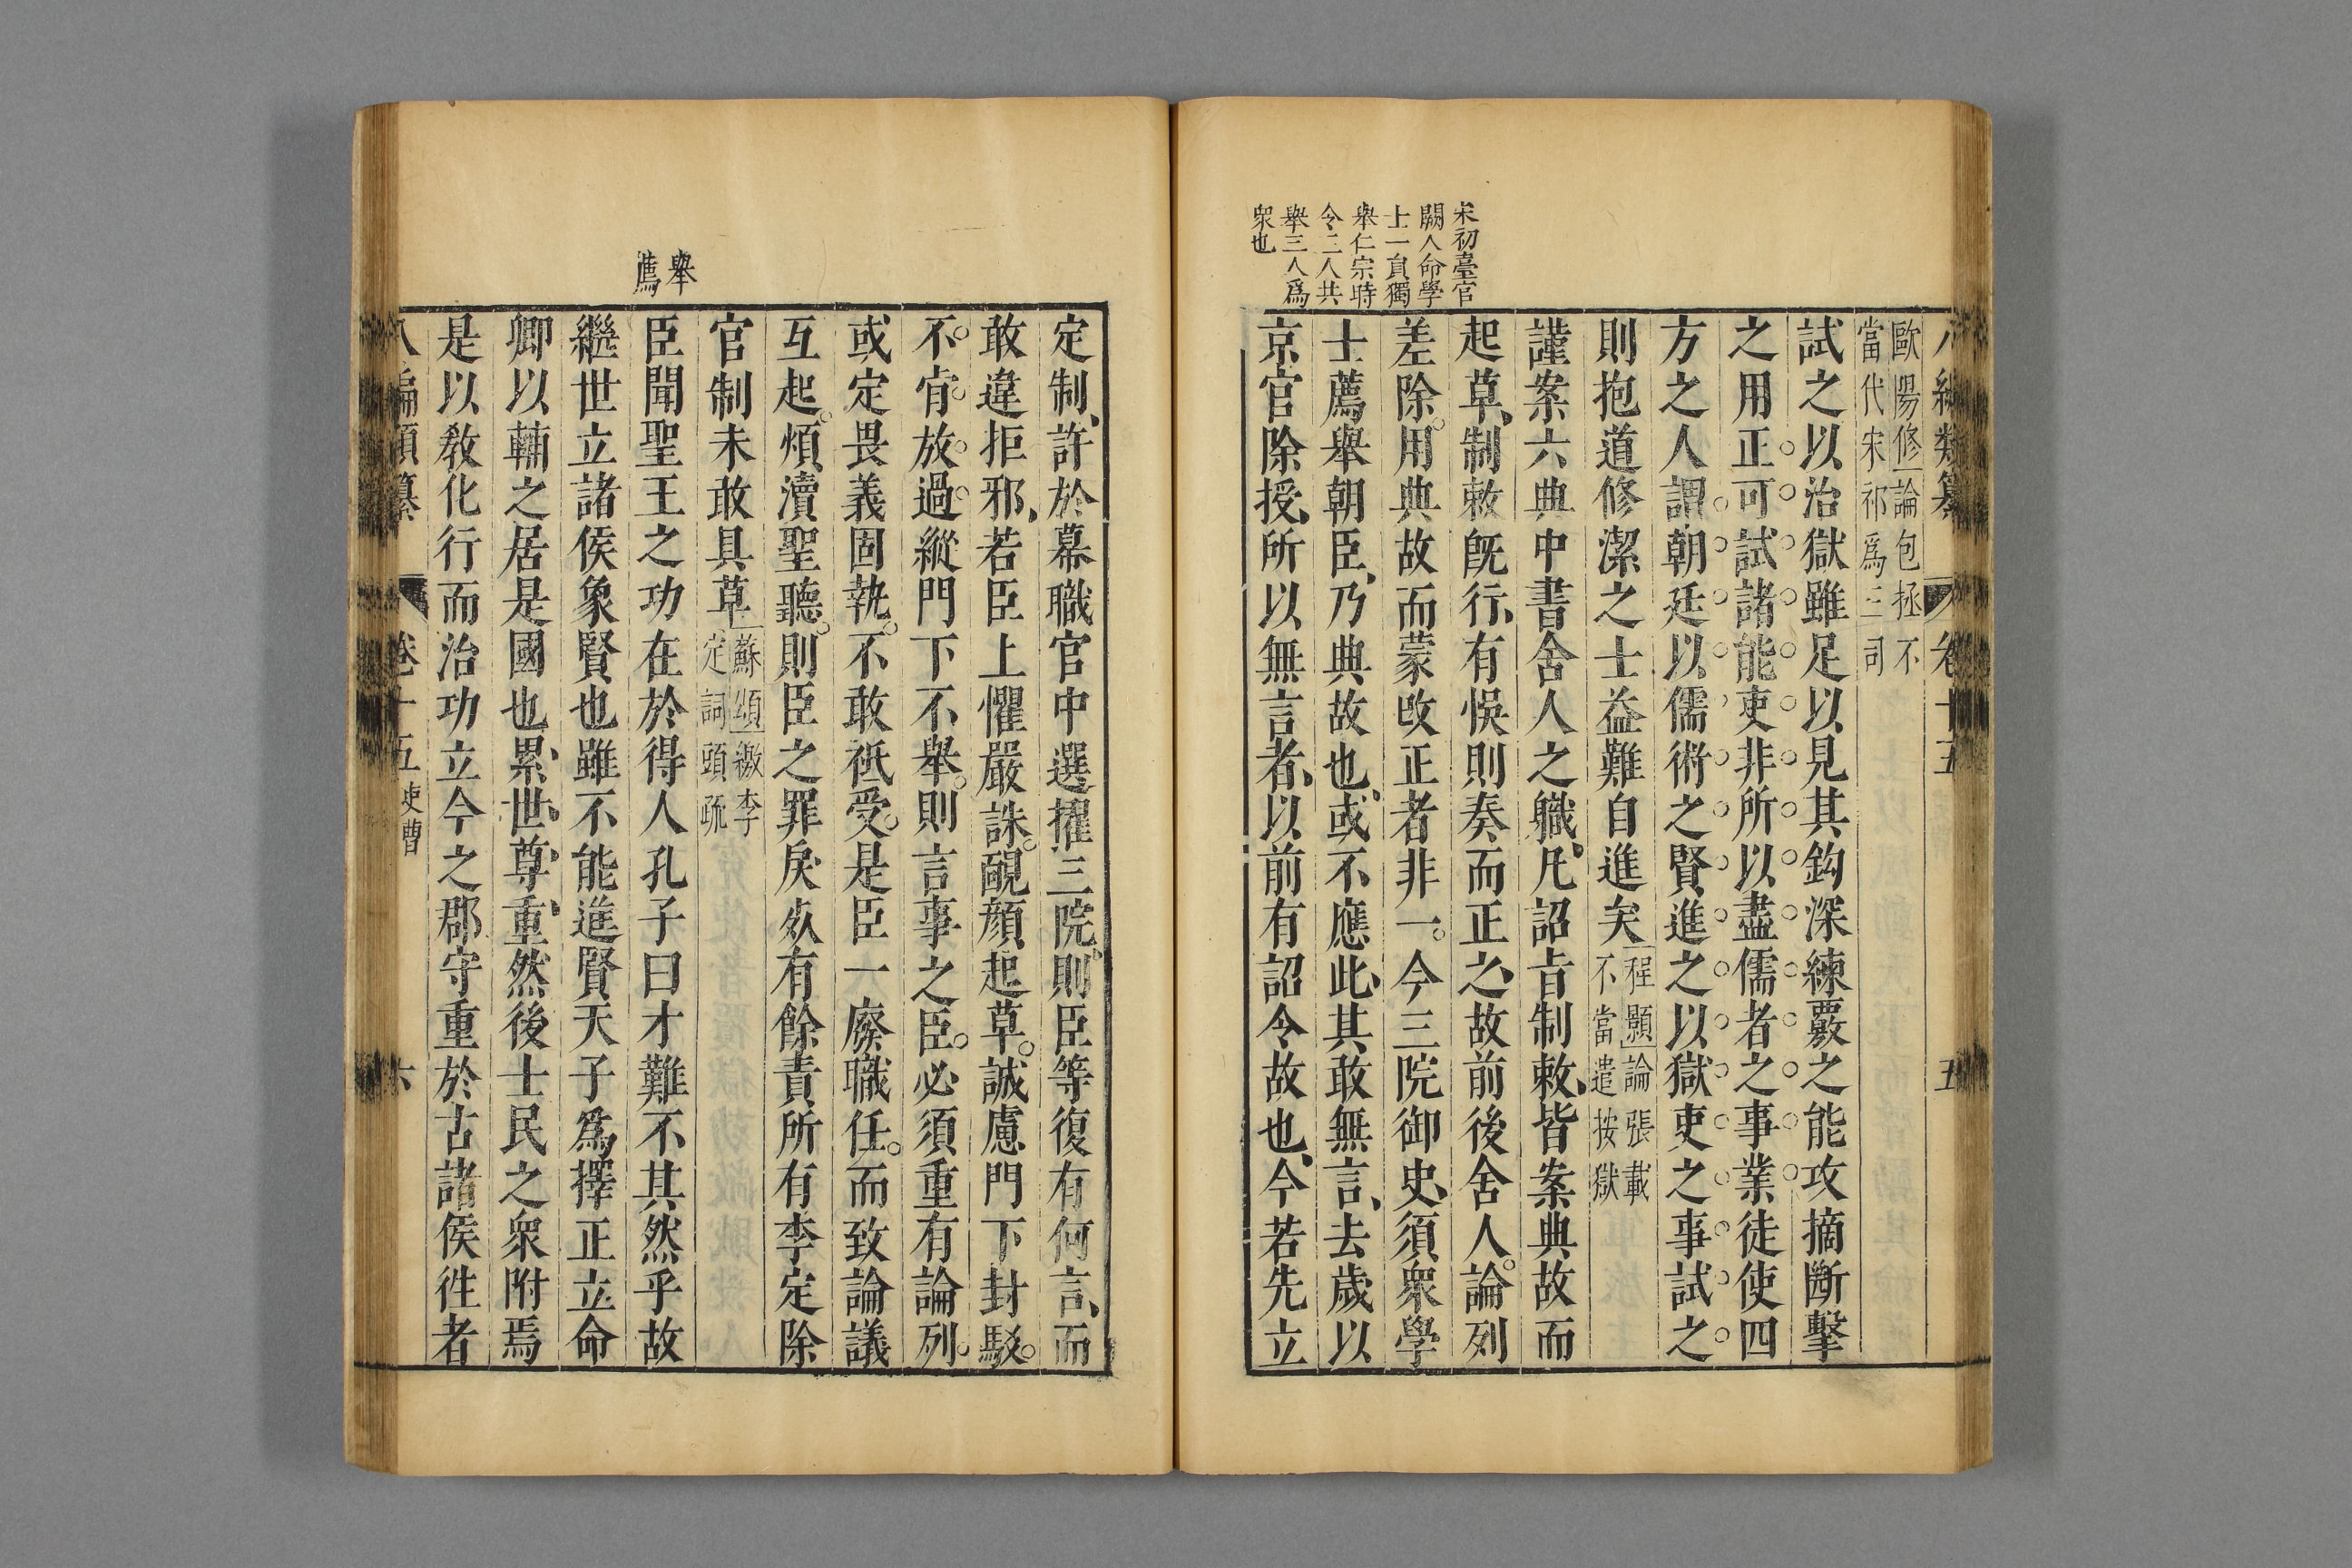 八編類纂 卷十五 五
宋初臺官
闕人命學
士一員獨
舉仁宗時
令二人共
舉三人爲
衆也
歐陽修論包拯不
當代宋祁爲三司
試之以治獄雖足以見其鈎深練覈之能攻摘斷擊
之用正可試諸能吏非所以盡儒者之事業徒使四
方之人謂朝廷以儒術之賢進之以獄吏之事試之
則抱道修潔之士益難自進矣
程顥論張載
不當遣按獄
謹案六典中書舍人之職凡詔旨制敕皆案典故而
起草制敕旣行有悞則奏而正之故前後舍人論列
差除用典故而蒙改正者非一今三院御史須衆學
士薦舉朝臣乃典故也或不應此其敢無言去歲以
京官除授所以無言者以前有詔令故也今若先立
定制許於幕職官中選擢三院則臣等復有何言而
敢違拒邪若臣上懼嚴誅靦顏起草誠慮門下封駁
不肯放過縱門下不舉則言事之臣必須重有論列
或定畏義固執不敢祇受是臣一廢職任而致論議
互起煩瀆聖聽則臣之罪戾死有餘責所有李定除
官制未敢具草
蘇頌繳李
定詞頭疏
舉
薦
臣聞聖王之功在於得人孔子曰才難不其然乎故
繼世立諸侯象賢也雖不能進賢天子爲擇正立命
卿以輔之居是國也累世尊重然後士民之衆附焉
是以敎化行而治功立今之郡守重於古諸侯徃者
八編類纂 卷十五 吏曹 六